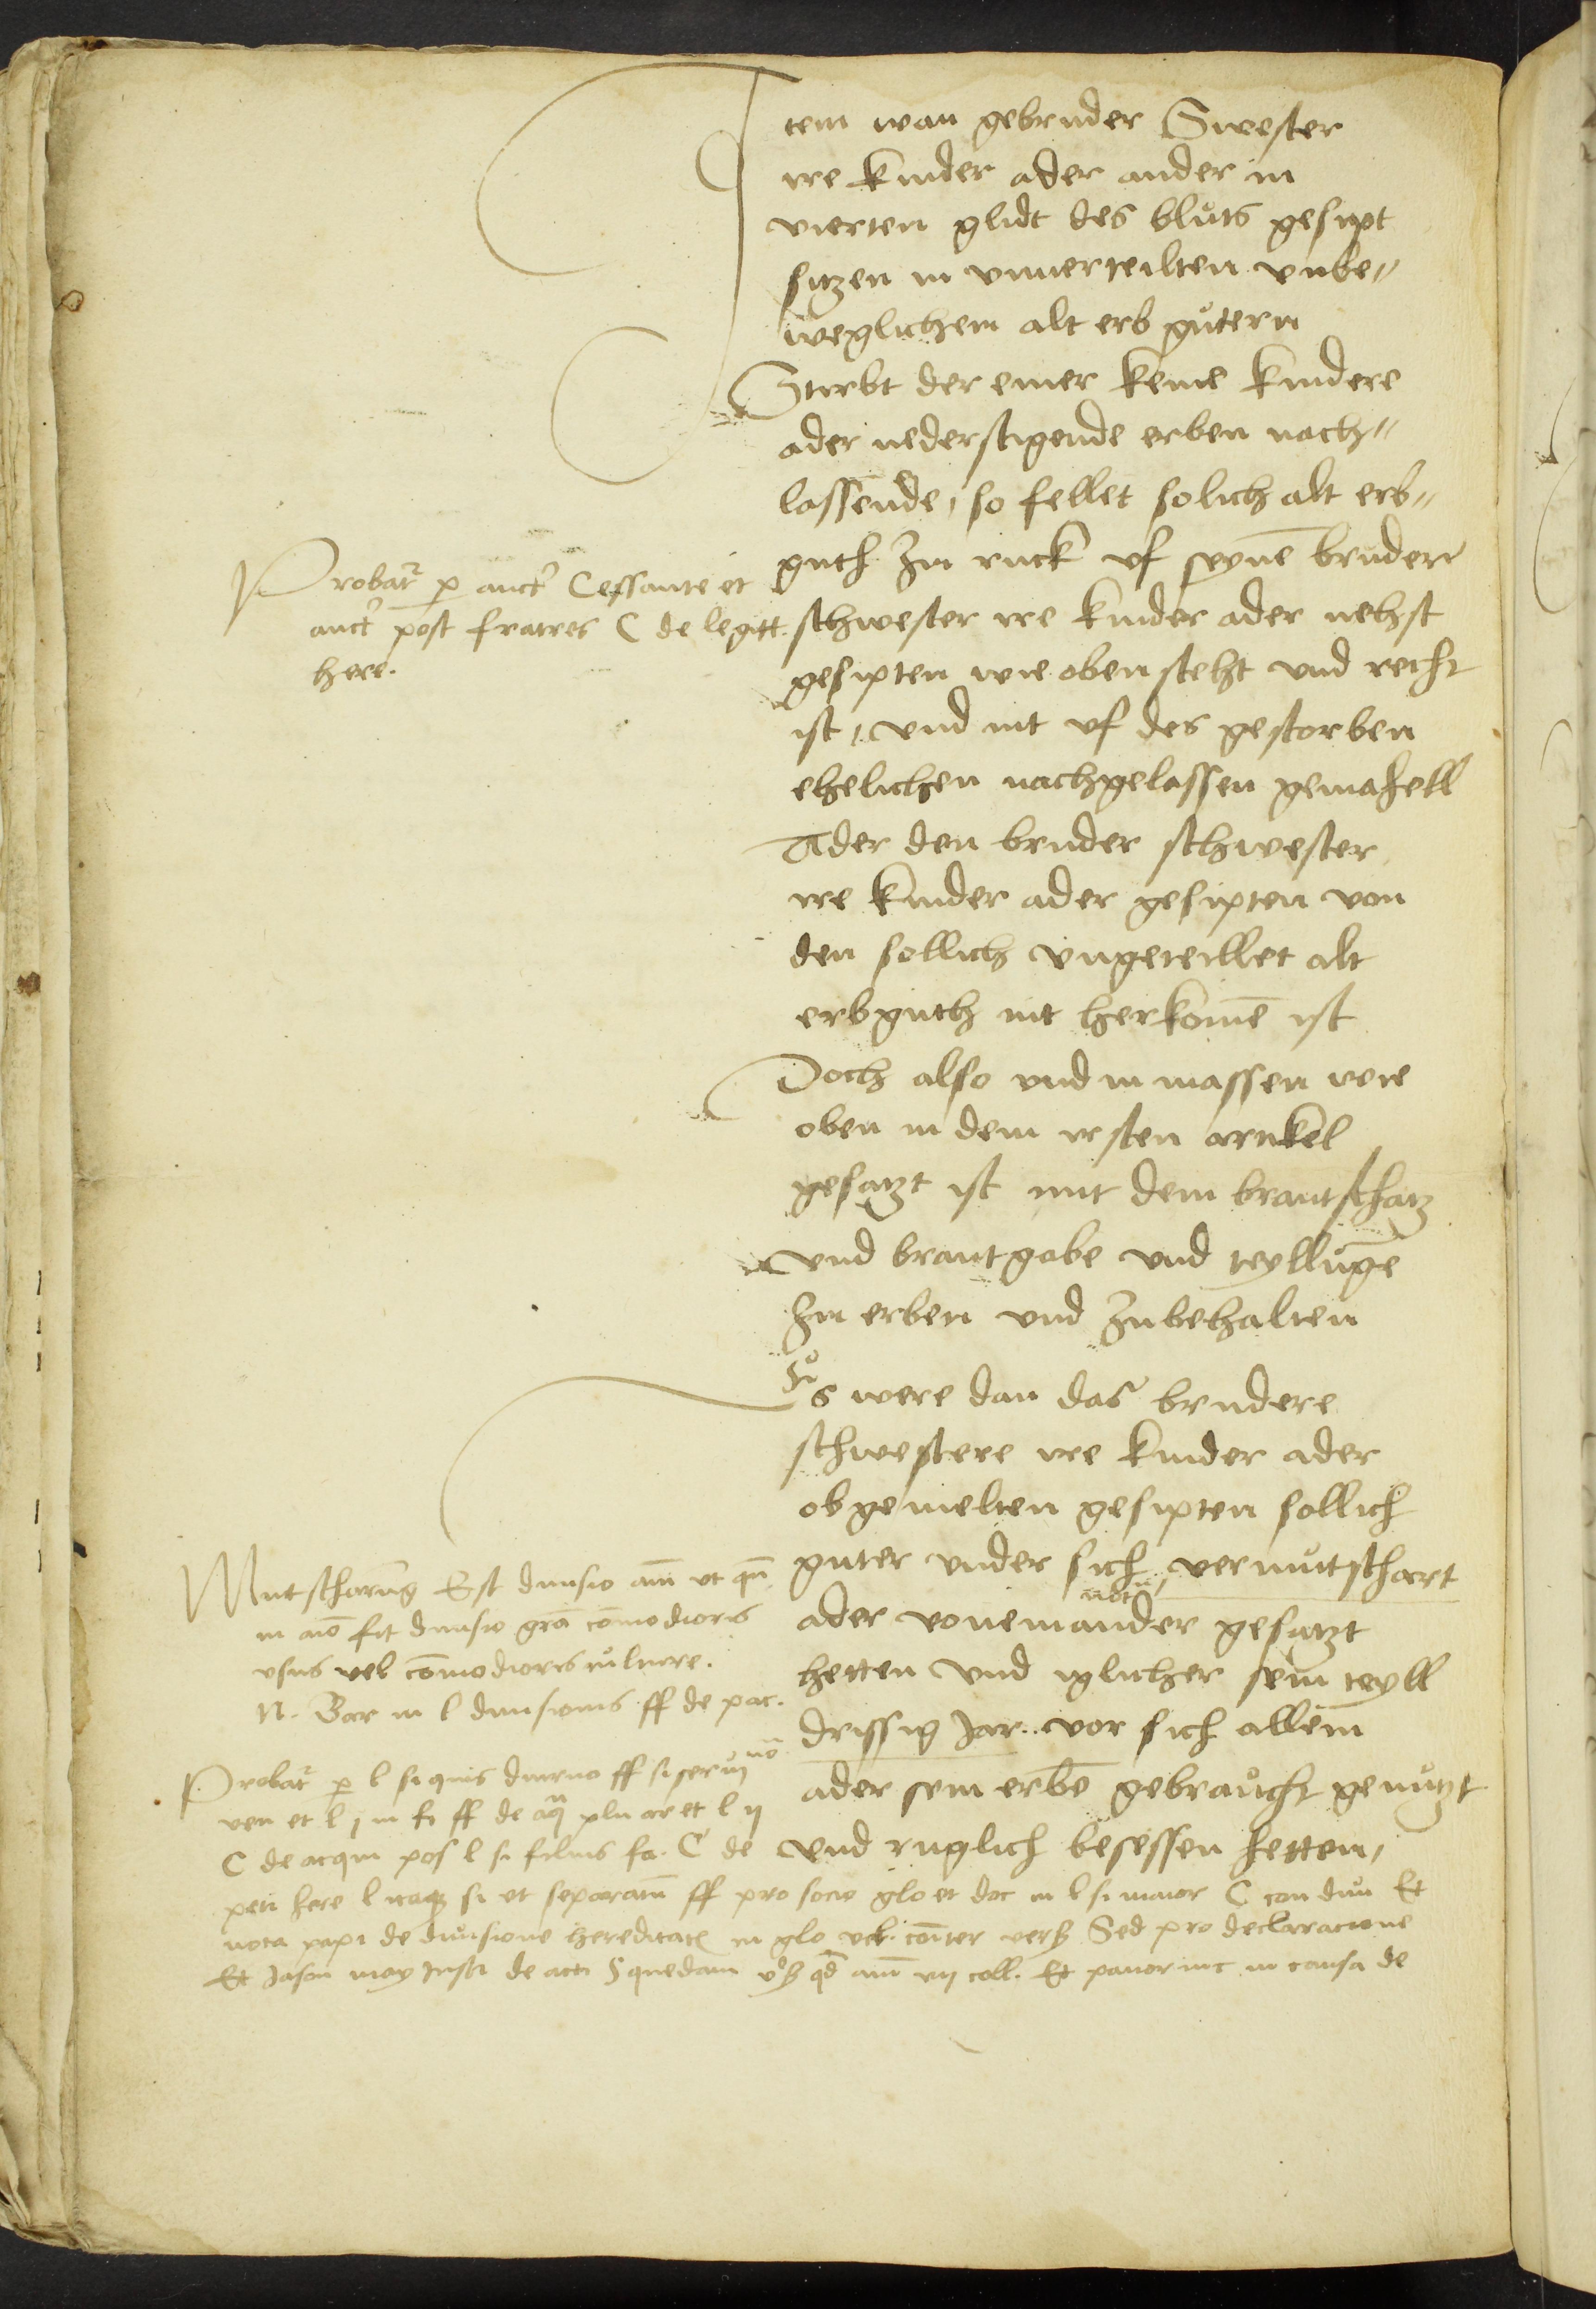 Item wan gebruder Swester
ire kinder ader ander in
vierten glidt des blůts gesipt
sitzen in vnuerteilten vnbe〃
weglichem alt erb gůtern
Stirbt der einer keine kindere
ader nederstigende erben nach〃
lassende, so fellet solich alt erb〃
guth Zu ruck vf seynē bruder
schwester ire kinder ader nehst
gesipten wie oben steht vnd recht
ist, vnd nit vf des gestorben
ehelichen nachgelassen gemahell
Ader den bruder schwester
ire kinder ader gesipten von
den sollich vngeteillet alt
erbguth nit herkomē ist
Doch also vnd in massen wie
oben in dem irsten artickel
gesatzt ist mit dem brautschatz
vnd brautgabe vnd teyllůge
Zu erben vnd Zubehalten
Es were dan das brudere
schwestere ire kinder ader
obgemelten gesipten sollich
guter vnder sich vermůtschart
ader voneinander gesatzt
hetten vnd iglicher sein teyll
drissig Jar vor sich allein
ader sein erbē gebraůcht genůtzt
vnd ruglich besessen hetten,
Probatr p auct Cessante et
auct post fratres C de legitt.
here.
Mutscharūg Est diuisio
fit diuisio grā cōmodioris
vsus vel cōmodioris
N. Bar in l diuisionis ff de pac.
Probatr p l si quis diuturno ff si seru
ven et l j in fi ff de aq plu ar et l ij
C de acqui pos l si filius fa. C de
peti here l itaq si vt separatū ff pro socio glo et doc in l si maior C con diui Et
nota papi de diuisione hereditatꝭ in glo vel. cōiter vers Sed pro declaracione
Et Jason may Insti de acti § quedam coll. Et panor in c in causa de